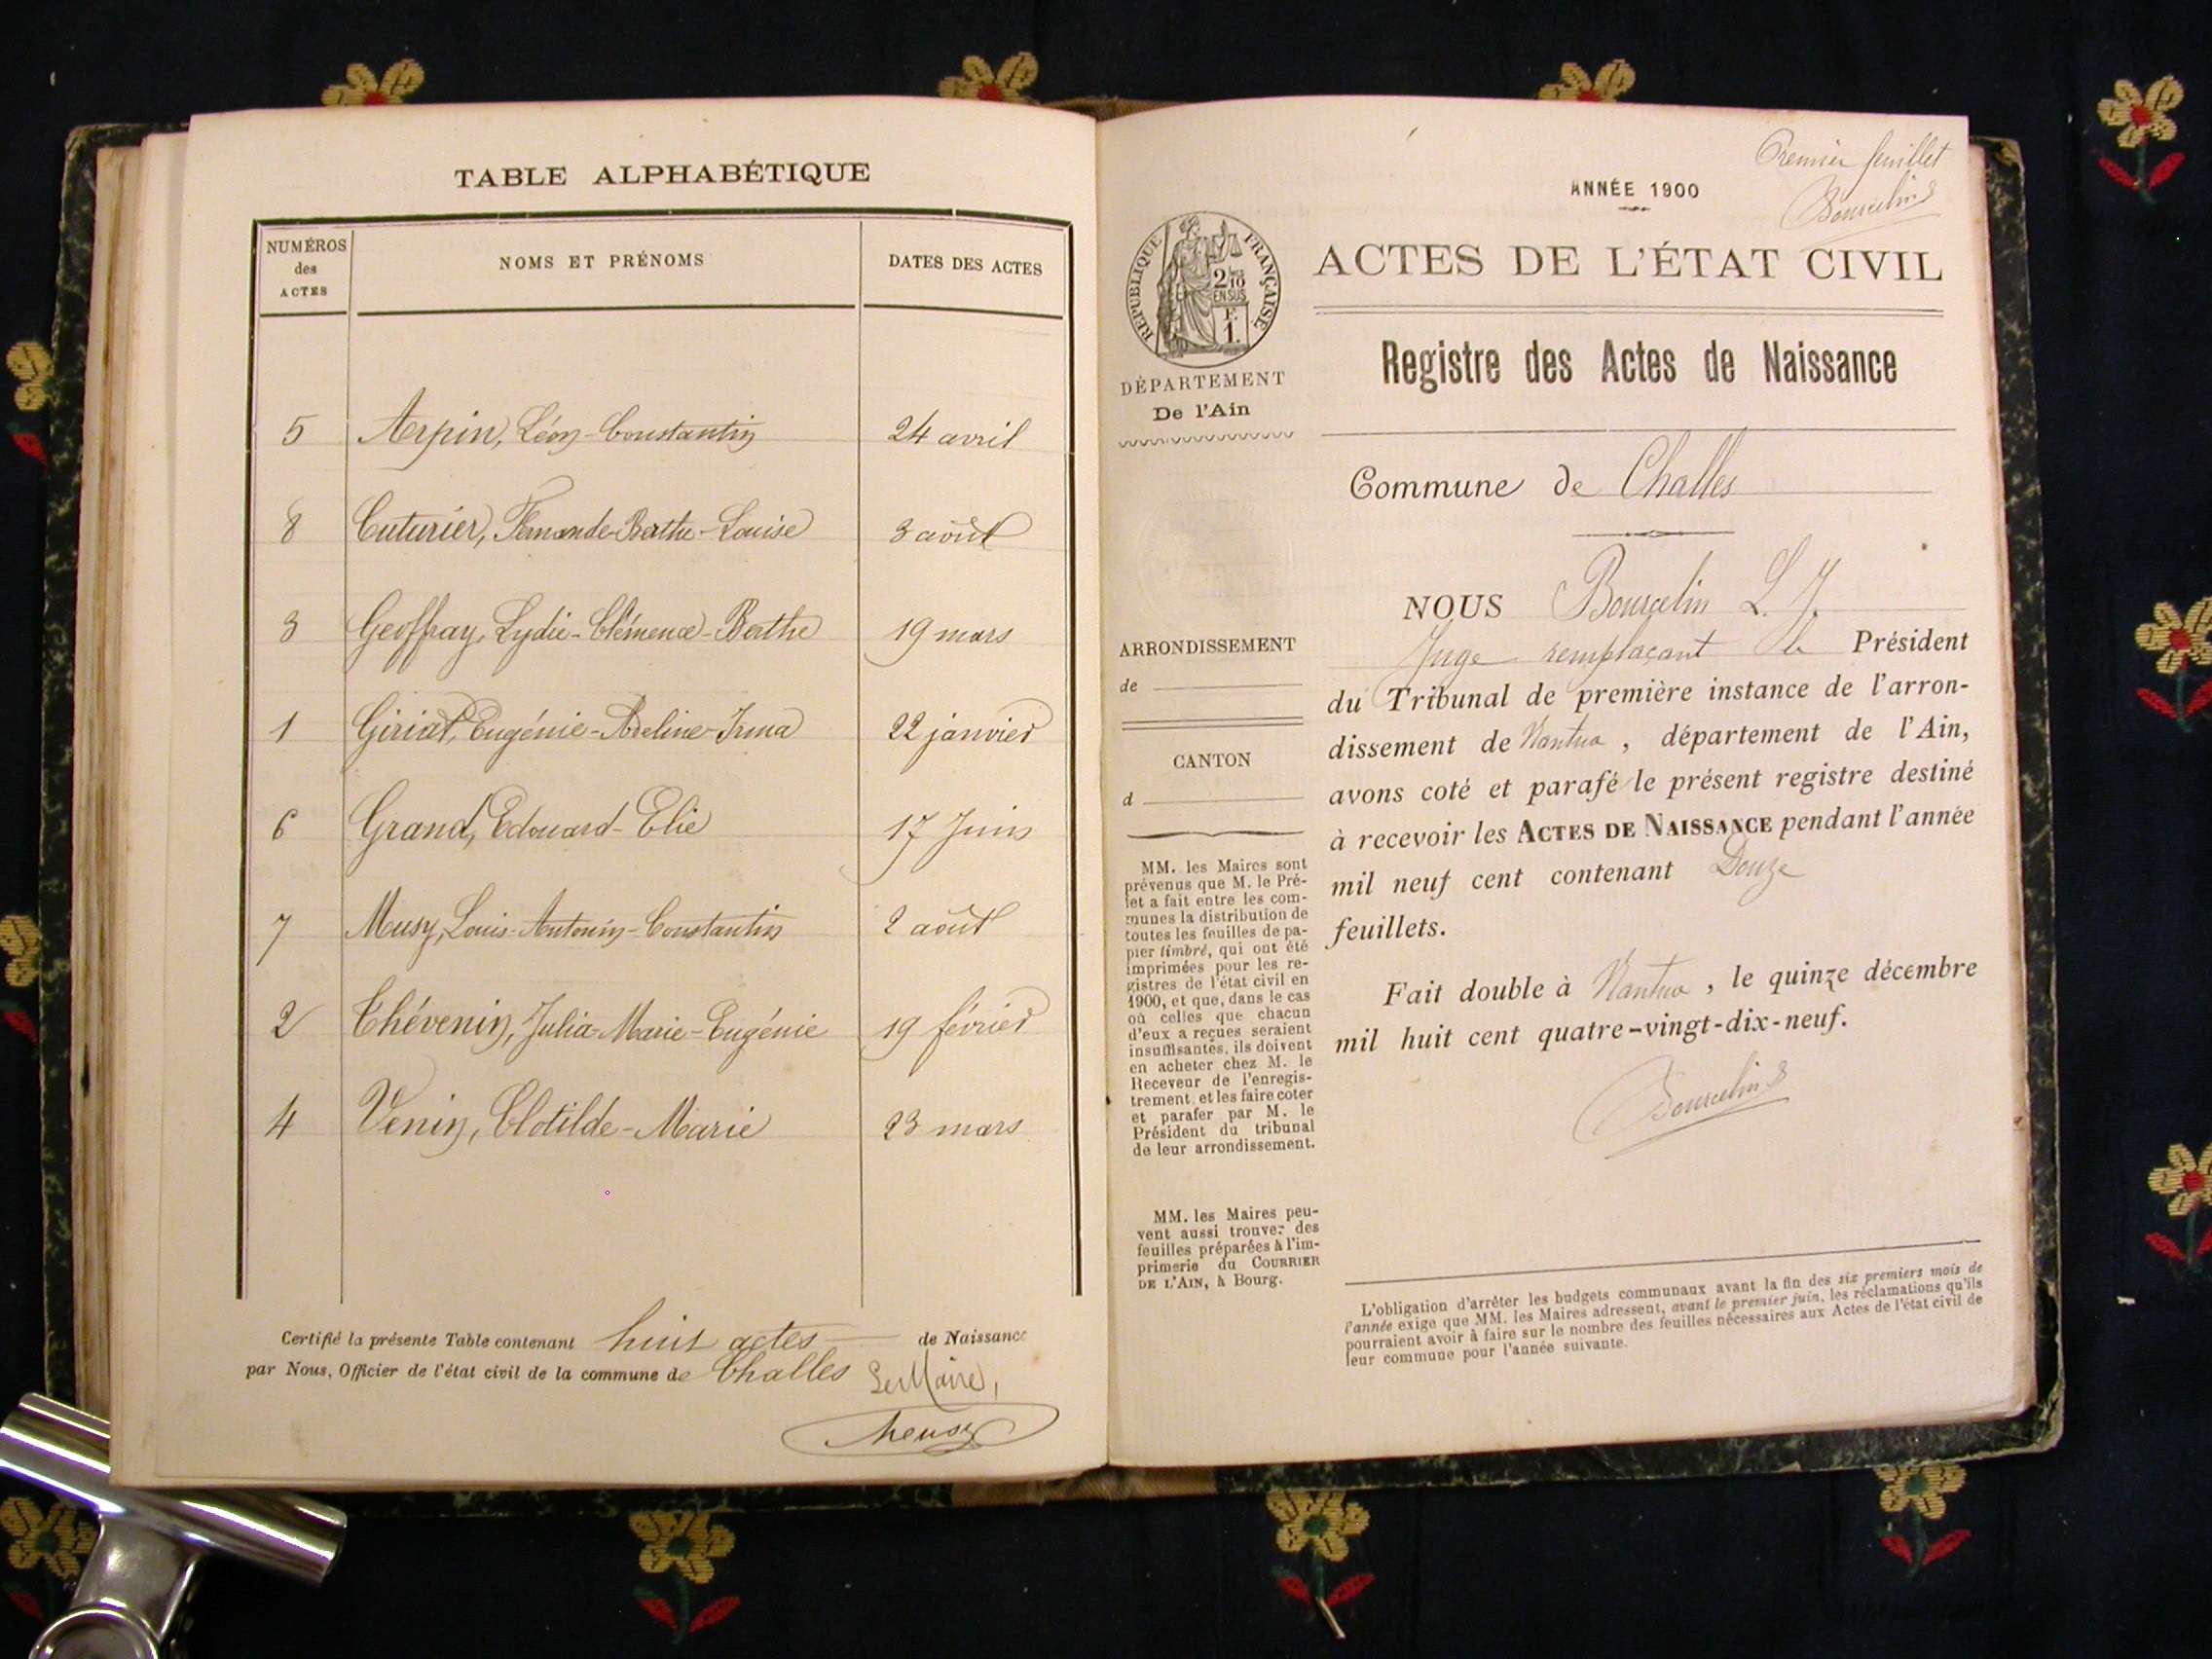 TABLE ALPHABÉTIQUE
NUMÉROS
des
ACTES
NOMS ET PRÉNOMS
DATES DES ACTES
5 Arpin, Léon-Constantin 24 avril
8 Cuturier, Fernande-Berthe-Louise 3 août
3 Geoffray, Lydie-Clémence-Berthe 19 mars
1 Giriat, Eugénie-Adeline-Irma 22 janvier
6 Grand, Edouard-Elie 17 Juin
7 Musy, Louis-Antonin-Constantin 2 août
2 Thévenin, Julia-Marie-Eugénie 19 février
4 Venin, Clotilde-Marie 23 mars
Certifié la présente Table contenant huit actes de Naissance
par Nous, Officier de l'état civil de la commune de Challes
Le Maire,
Premier feuillet
Bourcelin
ANNÉE 1900
RÉPUBLIQUE FRANÇAISE
2/10
EN SUS
F.
1.
DÉPARTEMENT
De l'Ain
ACTES DE L'ÉTAT CIVIL
Registre des Actes de Naissance
Commune de Challes
NOUS Bourcelin L. J.
Juge remplaçant le Président
du Tribunal de première instance de l'arron-
dissement de Nantua, département de l'Ain,
avons coté et parafé le présent registre destiné
à recevoir les ACTES DE NAISSANCE pendant l'année
mil neuf cent contenant Douze
feuillets.
Fait double à Nantua, le quinze décembre
mil huit cent quatre-vingt-dix-neuf.
Bourcelin
ARRONDISSEMENT
de
CANTON
d
MM. les Maires sont
prévenus que M. le Pré-
fet a fait entre les com-
munes la distribution de
toutes les feuilles de pa-
pier timbré, qui ont été
imprimées pour les re-
gistres de l'état civil en
1900, et que, dans le cas
où celles que chacun
d'eux a reçues seraient
insuffisantes, ils doivent
en acheter chez M. le
Receveur de l'enregis-
trement, et les faire coter
et parafer par M. le
Président du tribunal
de leur arrondissement.
MM. les Maires peu-
vent aussi trouver des
feuilles préparées à l'im-
primerie du COURRIER
DE L'AIN, à Bourg.
L'obligation d'arrêter les budgets communaux avant la fin des six premiers mois de
l'année exige que MM. les Maires adressent, avant le premier juin, les réclamations qu'ils
pourraient avoir à faire sur le nombre des feuilles nécessaires aux Actes de l'état civil de
leur commune pour l'année suivante.